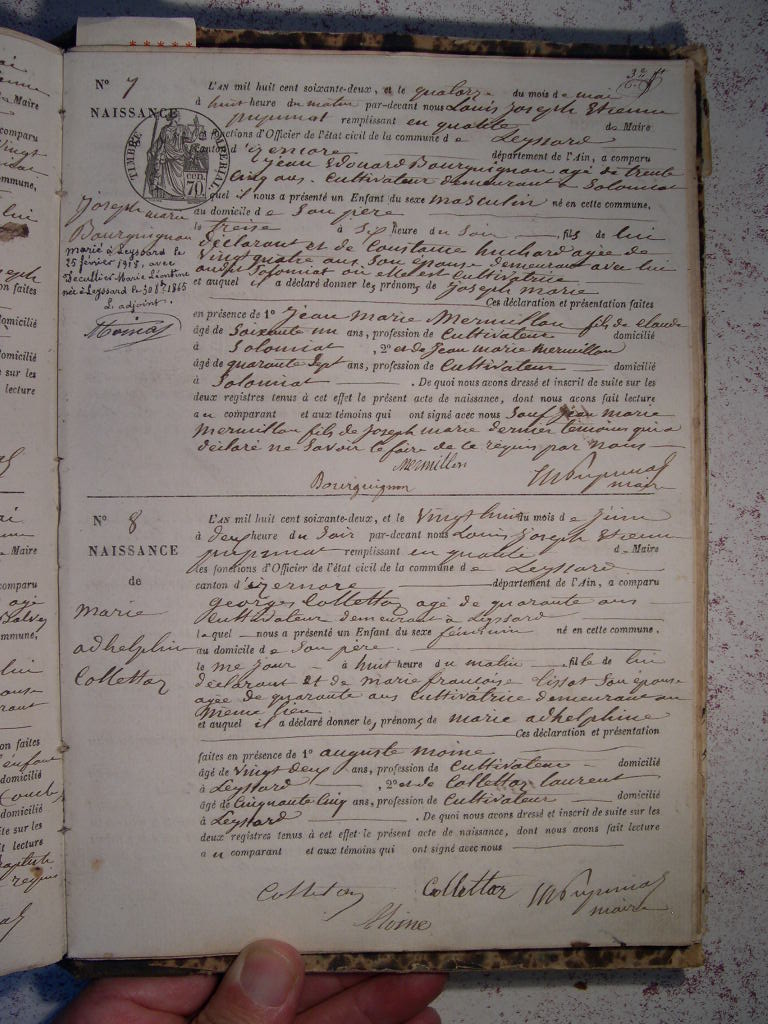 N° 7
NAISSANCE
TIMBRE IMPÉRIAL
70 cen.
Joseph marie
Bourguignon
marié à Leyssard le
25 février 1918, avec
Marie Léontine
née à Leyssard le 30 8bre 1865
L'adjoint.
L'AN mil huit cent soixante-deux, et le quatorze du mois de mai
à huit heure du matin par-devant nous Louis Joseph Etienne
pupunat remplissant en qualité de Maire
les fonctions d'Officier de l'état civil de la commune de Leyssard
canton d'izernore département de l'Ain, a comparu
jean Edouard Bourguignon agé de trente
Cinq ans. Cultivateur demeurant a Solomiat
lequel il nous a présenté un Enfant du sexe masculin né en cette commune,
au domicile de Son père
le treise à Six heure du Soir fils de lui
déclarant et de Constance huchard agée de
vingt quatre ans Son épouse demeurant avec lui
audit Solomiat où elle est Cultivatrice
et auquel il a déclaré donner les prénoms de joseph marie
Ces déclaration et présentation faites
en présence de 1° jean marie Mermillon fils de claude
âgé de Soixante un ans, profession de Cultivateur domicilié
à Solomiat , 2° et de jean marie mermillon
âgé de quarante Sept ans, profession de Cultivateur domicilié
à Solomiat . De quoi nous avons dressé et inscrit de suite sur les
deux registres tenus à cet effet le présent acte de naissance, dont nous avons fait lecture
au comparant et aux témoins qui ont signé avec nous Sauf jean marie
mermillon fils de joseph marie dernier témoins qui a
déclaré ne Savoir le faire de ce requis par nous
Mermillon
Bourguignon
maire
N° 8
NAISSANCE
de
marie
adhelphine
Collettaz
L'AN mil huit cent soixante-deux, et le vingt huit du mois de juin
à deux heure du Soir par-devant nous Louis Joseph Etienne
pupunat remplissant en qualité de Maire
les fonctions d'Officier de l'état civil de la commune de Leyssard
canton d'izernore département de l'Ain, a comparu
georges Collettaz agé de quarante ans
Cultivateur demeurant a Leyssard
lequel nous a présenté un Enfant du sexe féminin né en cette commune,
au domicile de Son père
le me jour à huit heure du matin fille de lui
déclarant et de marie françoise Son épouse
agée de quarante ans Cultivatrice demeurant au
même lieu
et auquel il a déclaré donner les prénoms de marie adhelphine
Ces déclaration et présentation
faites en présence de 1° auguste moine
âgé de vingt deux ans, profession de Cultivateur domicilié
à Leyssard , 2° et de Collettaz laurent
âgé de Cinquante Cinq ans, profession de Cultivateur domicilié
à Leyssard . De quoi nous avons dressé et inscrit de suite sur les
deux registres tenus à cet effet le présent acte de naissance, dont nous avons fait lecture
au comparant et aux témoins qui ont signé avec nous
Collettaz Collettaz
maire
Moine